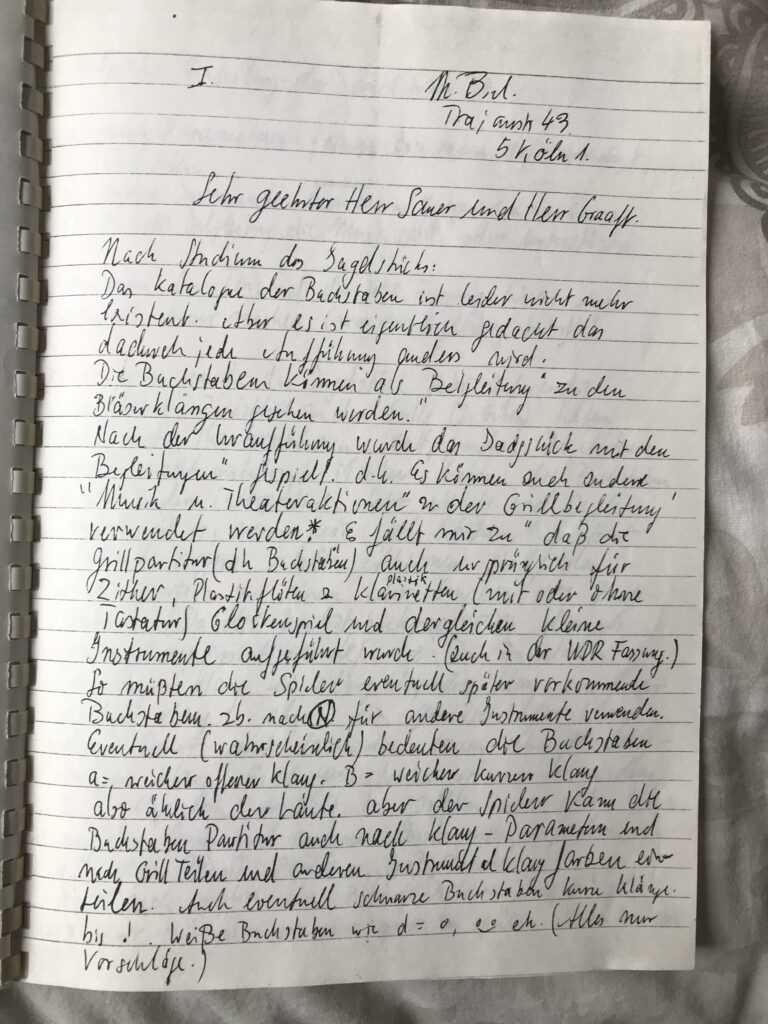 I.
M. B
43
5 Köln 1.
Sehr geehrter Herr Sauer und Herr Graaff.
Nach Studium des Jagdstücks:
Das Katalogue der Buchstaben ist leider nicht mehr
existent. Aber es ist eigentlich gedacht das
dadurch jede Aufführung anders wird.
Die Buchstaben können als "Begleitung" zu den
Bläserklängen gesehen werden."
Nach der Uraufführung wurde das Jagdstück mit den
Begleitungen" gespielt. d.h. Es können auch andere
"Musik u. Theateraktionen" zu der Grillbegleitung
verwendet werden.* Es fällt mir zu" daß die
Grillpartitur (dh Buchstaben) auch ursprünglich für
Zither, Plastikflöten & plastik Klarinetten (mit oder ohne
Tastatur) Glockenspiel und dergleichen kleine
Instrumente aufgeführt wurde. (auch in der WDR Fassung.)
So müßten die Spieler eventuell später vorkommende
Buchstaben. zb. nach N für andere Instrumente verwenden.
Eventuell (wahrscheinlich) bedeuten die Buchstaben
a = weicher offener Klang. B = weicher kurzer Klang
also ählich der Laute. aber der Spieler kann die
Buchstaben Partitur auch nach Klang - Parametern und
nach Grill Teilen und anderen Klangfarben ein
teilen. Auch eventuell schwarze Buchstaben kurze Klänge.
bis ! . Weiße Buchstaben wie d = o, (Alles nur
Vorschläge.)